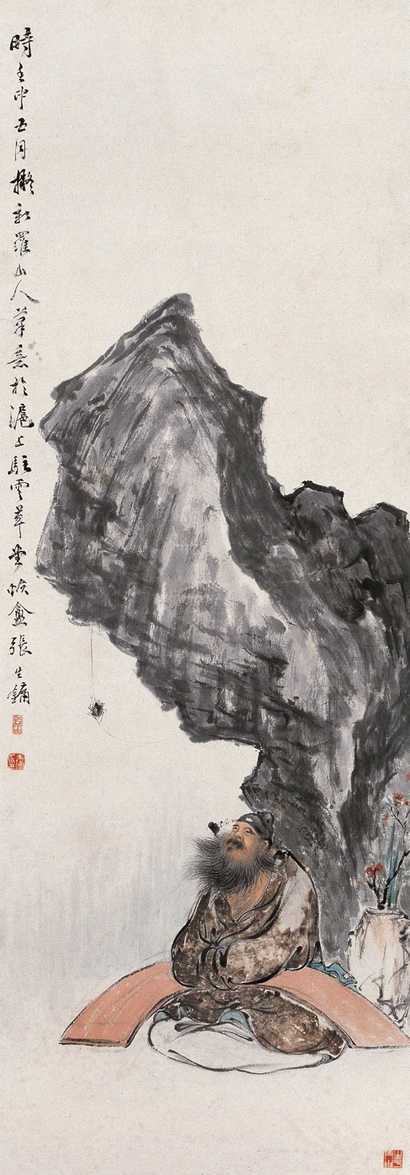 時壬申五月擬新羅山人筆意於滬上駐雲草堂恢盦張生鏞